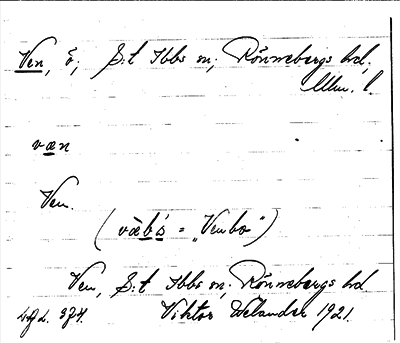 Ven, ö; S:t Ibbs sn; Rönnebergs hd,
Mlm. l.
væn
Ven.
(væ̀bs = „Venbo")
Ven, S:t Ibbs sn; Rönnebergs hd
Viktor Welander 1921.